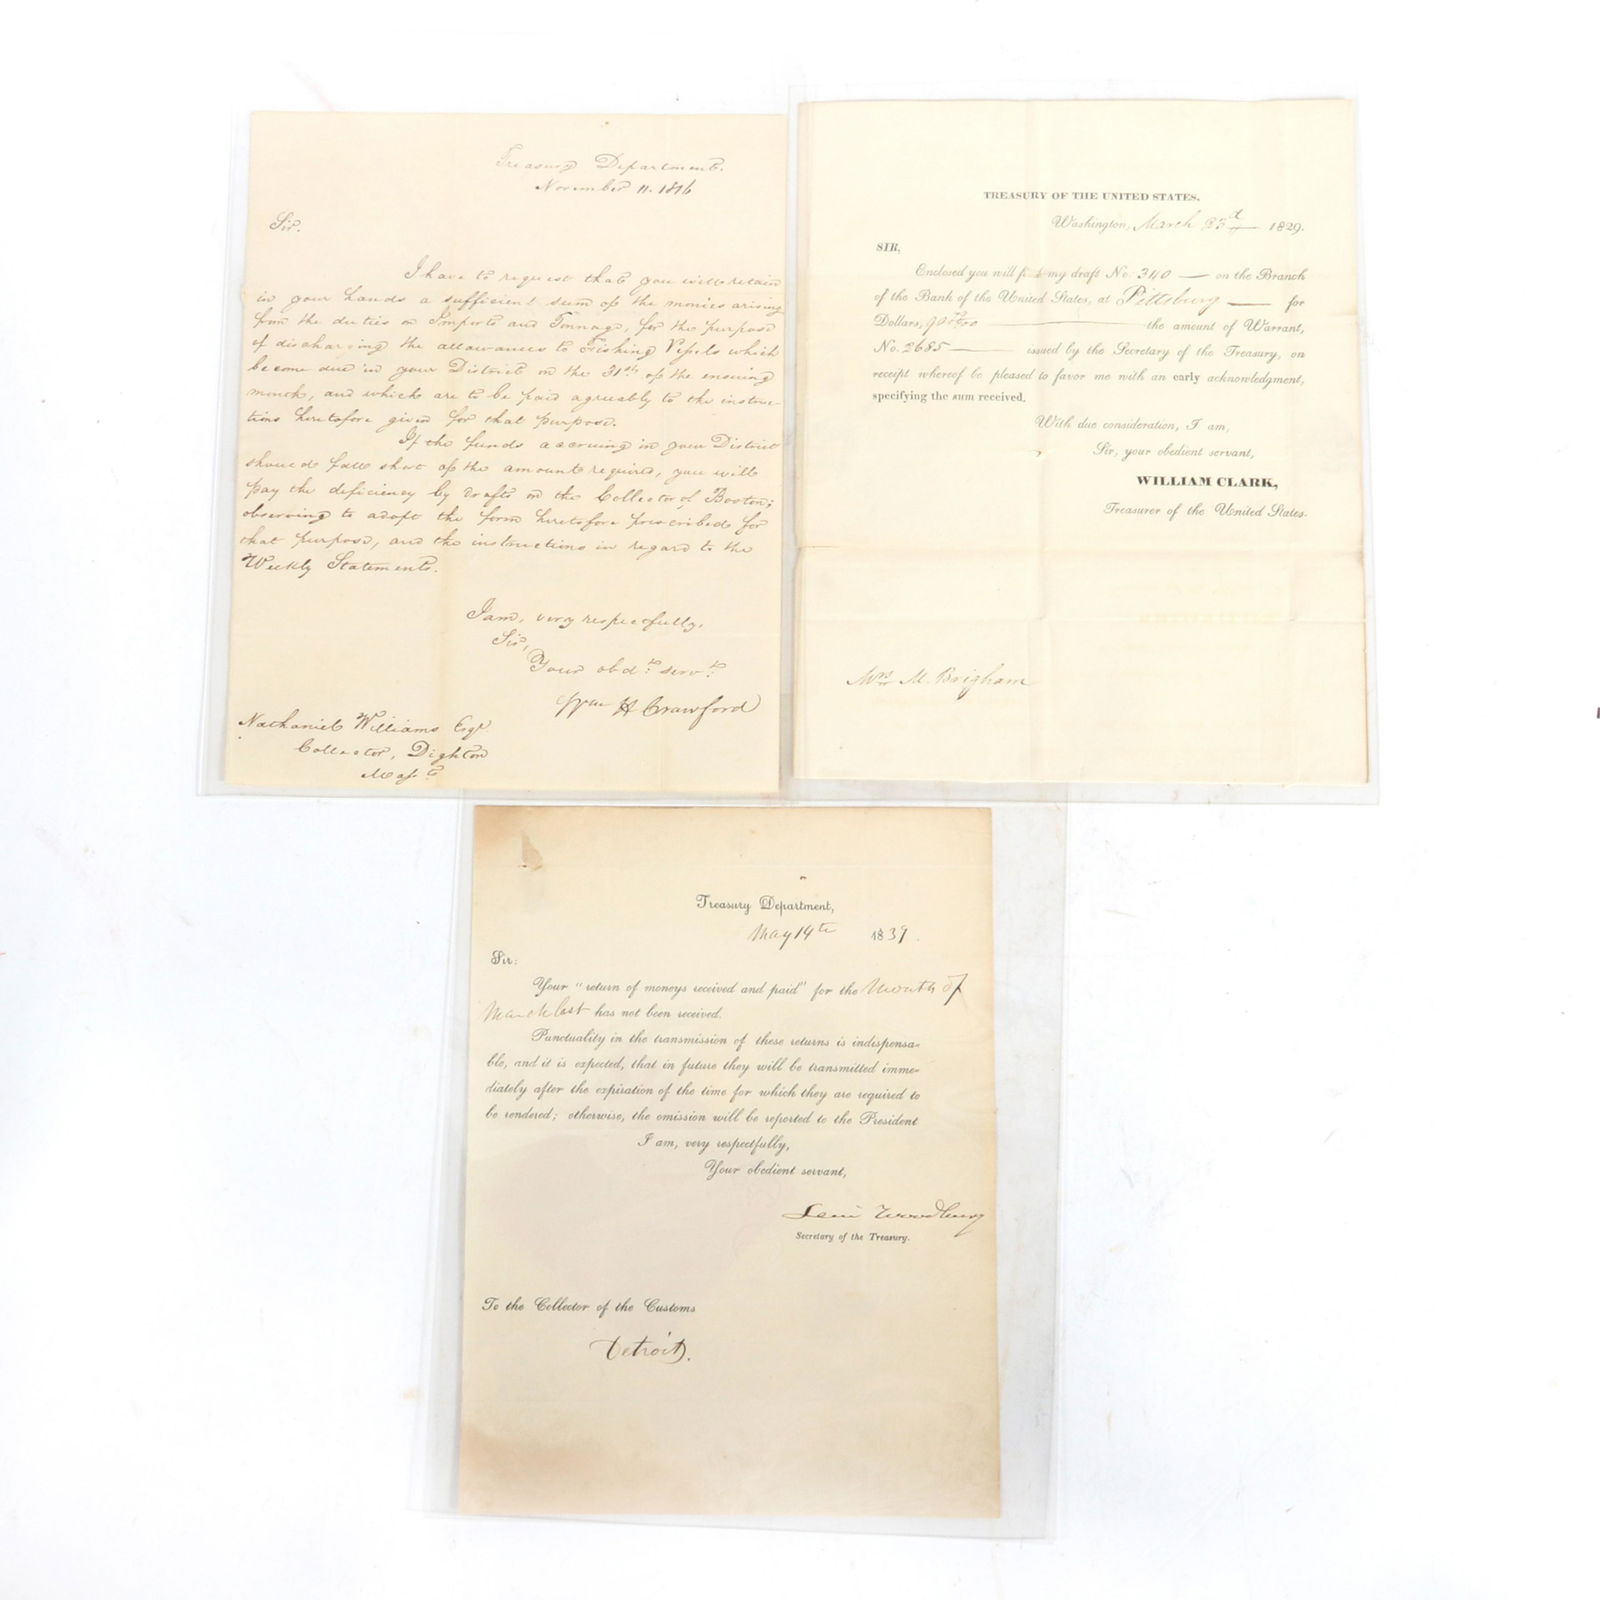 Treasury Department.
November 11. 1816
Sir.
I have to request that you will retain
in your hands a sufficient sum of the monies arising
from the duties on Imports and Tonnage, for the purpose
of discharging the allowances to Fishing Vessels which
become due in your District on the 31st of the ensuing
month, and which are to be paid agreeably to the instruc-
tions heretofore given for that purpose.
If the funds accruing in your District
should fall short of the amount required, you will
pay the deficiency by drafts on the Collector of Boston;
observing to adopt the form heretofore prescribed for
that purpose, and the instructions in regard to the
Weekly Statements.
I am, very respectfully,
Sir,
Your obdt. servt.
Wm H Crawford
Nathaniel Williams Esqr
Collector, Dighton
Massts
TREASURY OF THE UNITED STATES.
Washington, March 23d 1829.
SIR,
Enclosed you will my draft No. 340 — on the Branch
of the Bank of the United States, at Pittsburg — for
Dollars, the amount of Warrant,
No. 2685 — issued by the Secretary of the Treasury, on
receipt whereof be pleased to favor me with an early acknowledgment,
specifying the sum received.
With due consideration, I am,
Sir, your obedient servant,
WILLIAM CLARK,
Treasurer of the United States.
Mrs M. Brigham
Treasury Department,
May 14th 1839.
Sir:
Your "return of moneys received and paid" for the Month of
March last has not been received.
Punctuality in the transmission of these returns is indispensa-
ble, and it is expected, that in future they will be transmitted imme-
diately after the expiration of the time for which they are required to
be rendered; otherwise, the omission will be reported to the President
I am, very respectfully,
Your obedient servant,
Levi Woodbury
Secretary of the Treasury.
To the Collector of the Customs
Detroit.